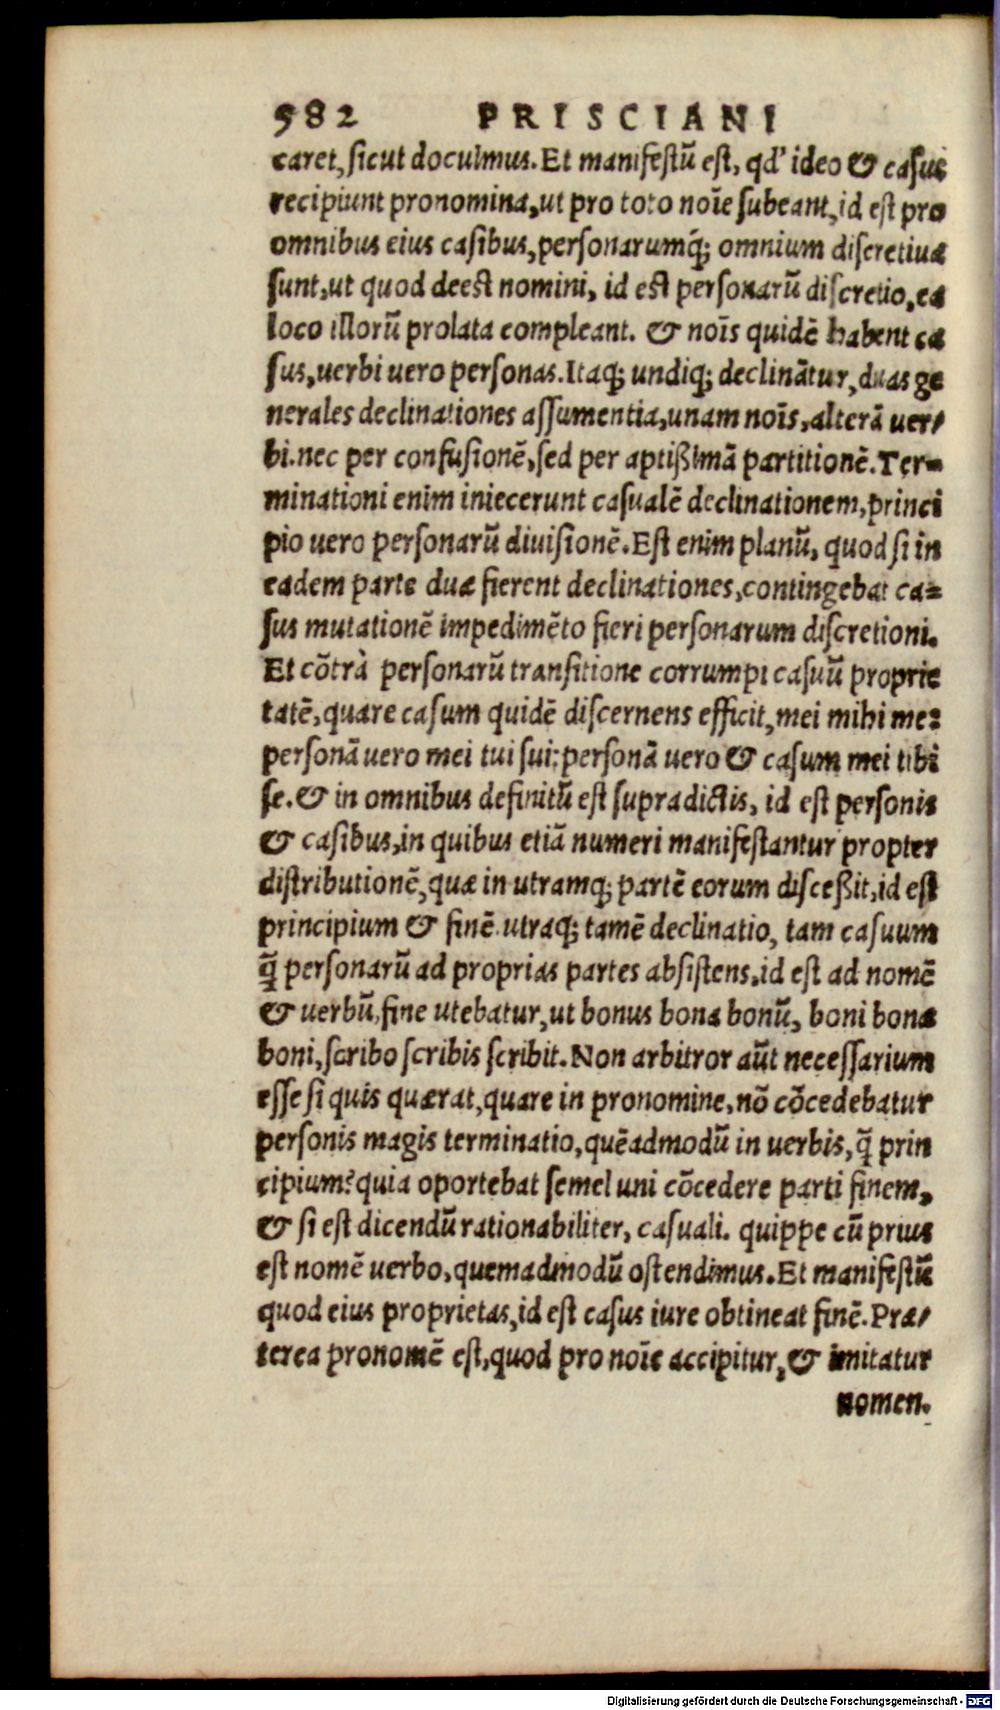 582 PRISCIANI
caret, sicut docuimus. Et manifestū est, qd' ideo & casus
recipiunt pronomina, ut pro toto noīe subeant, id est pro
omnibus eius casibus, personarumq; omnium discretiua
sunt, ut quod deest nomini, id est personarū discretio, ea
loco illorū prolata compleant. & noīs quidē habent ca
sus, uerbi uero personas. Itaq; undiq; declinātur, duas ge
nerales declinationes assumentia, unam noīs, alterā uer/
bi. nec per confusionē, sed per aptißimā partitionē. Ter-
minationi enim iniecerunt casualē declinationem, princi
pio uero personarū diuisionē. Est enim planū, quod si in
eadem parte duæ fierent declinationes, contingebat ca=
sus mutationē impedimēto fieri personarum discretioni.
Et cōtrà personarū transitione corrumpi casuū proprie
tatē, quare casum quidē discernens efficit, mei mihi me:
personā uero mei tui sui: personā uero & casum mei tibi
se. & in omnibus definitū est supradictis, id est personis
& casibus, in quibus etiā numeri manifestantur propter
distributionē, quæ in utramq; partē eorum disceßit, id est
principium & finē. utraq; tamē declinatio, tam casuum
q̄ personarū ad proprias partes absistens, id est ad nomē
& uerbū, fine utebatur, ut bonus bona bonū, boni bonæ
boni, scribo scribis scribit. Non arbitror aūt necessarium
esse si quis quærat, quare in pronomine, nō cōcedebatur
personis magis terminatio, quēadmodū in uerbis, q̄ prin
cipium? quia oportebat semel uni cōcedere parti finem,
& si est dicendū rationabiliter, casuali. quippe cū prius
est nomē uerbo, quemadmodū ostendimus. Et manifestū
quod eius proprietas, id est casus iure obtineat finē. Præ/
terea pronomē est, quod pro noīe accipitur, & imitatur
nomen.
Digitalisierung gefördert durch die Deutsche Forschungsgemeinschaft - DFG